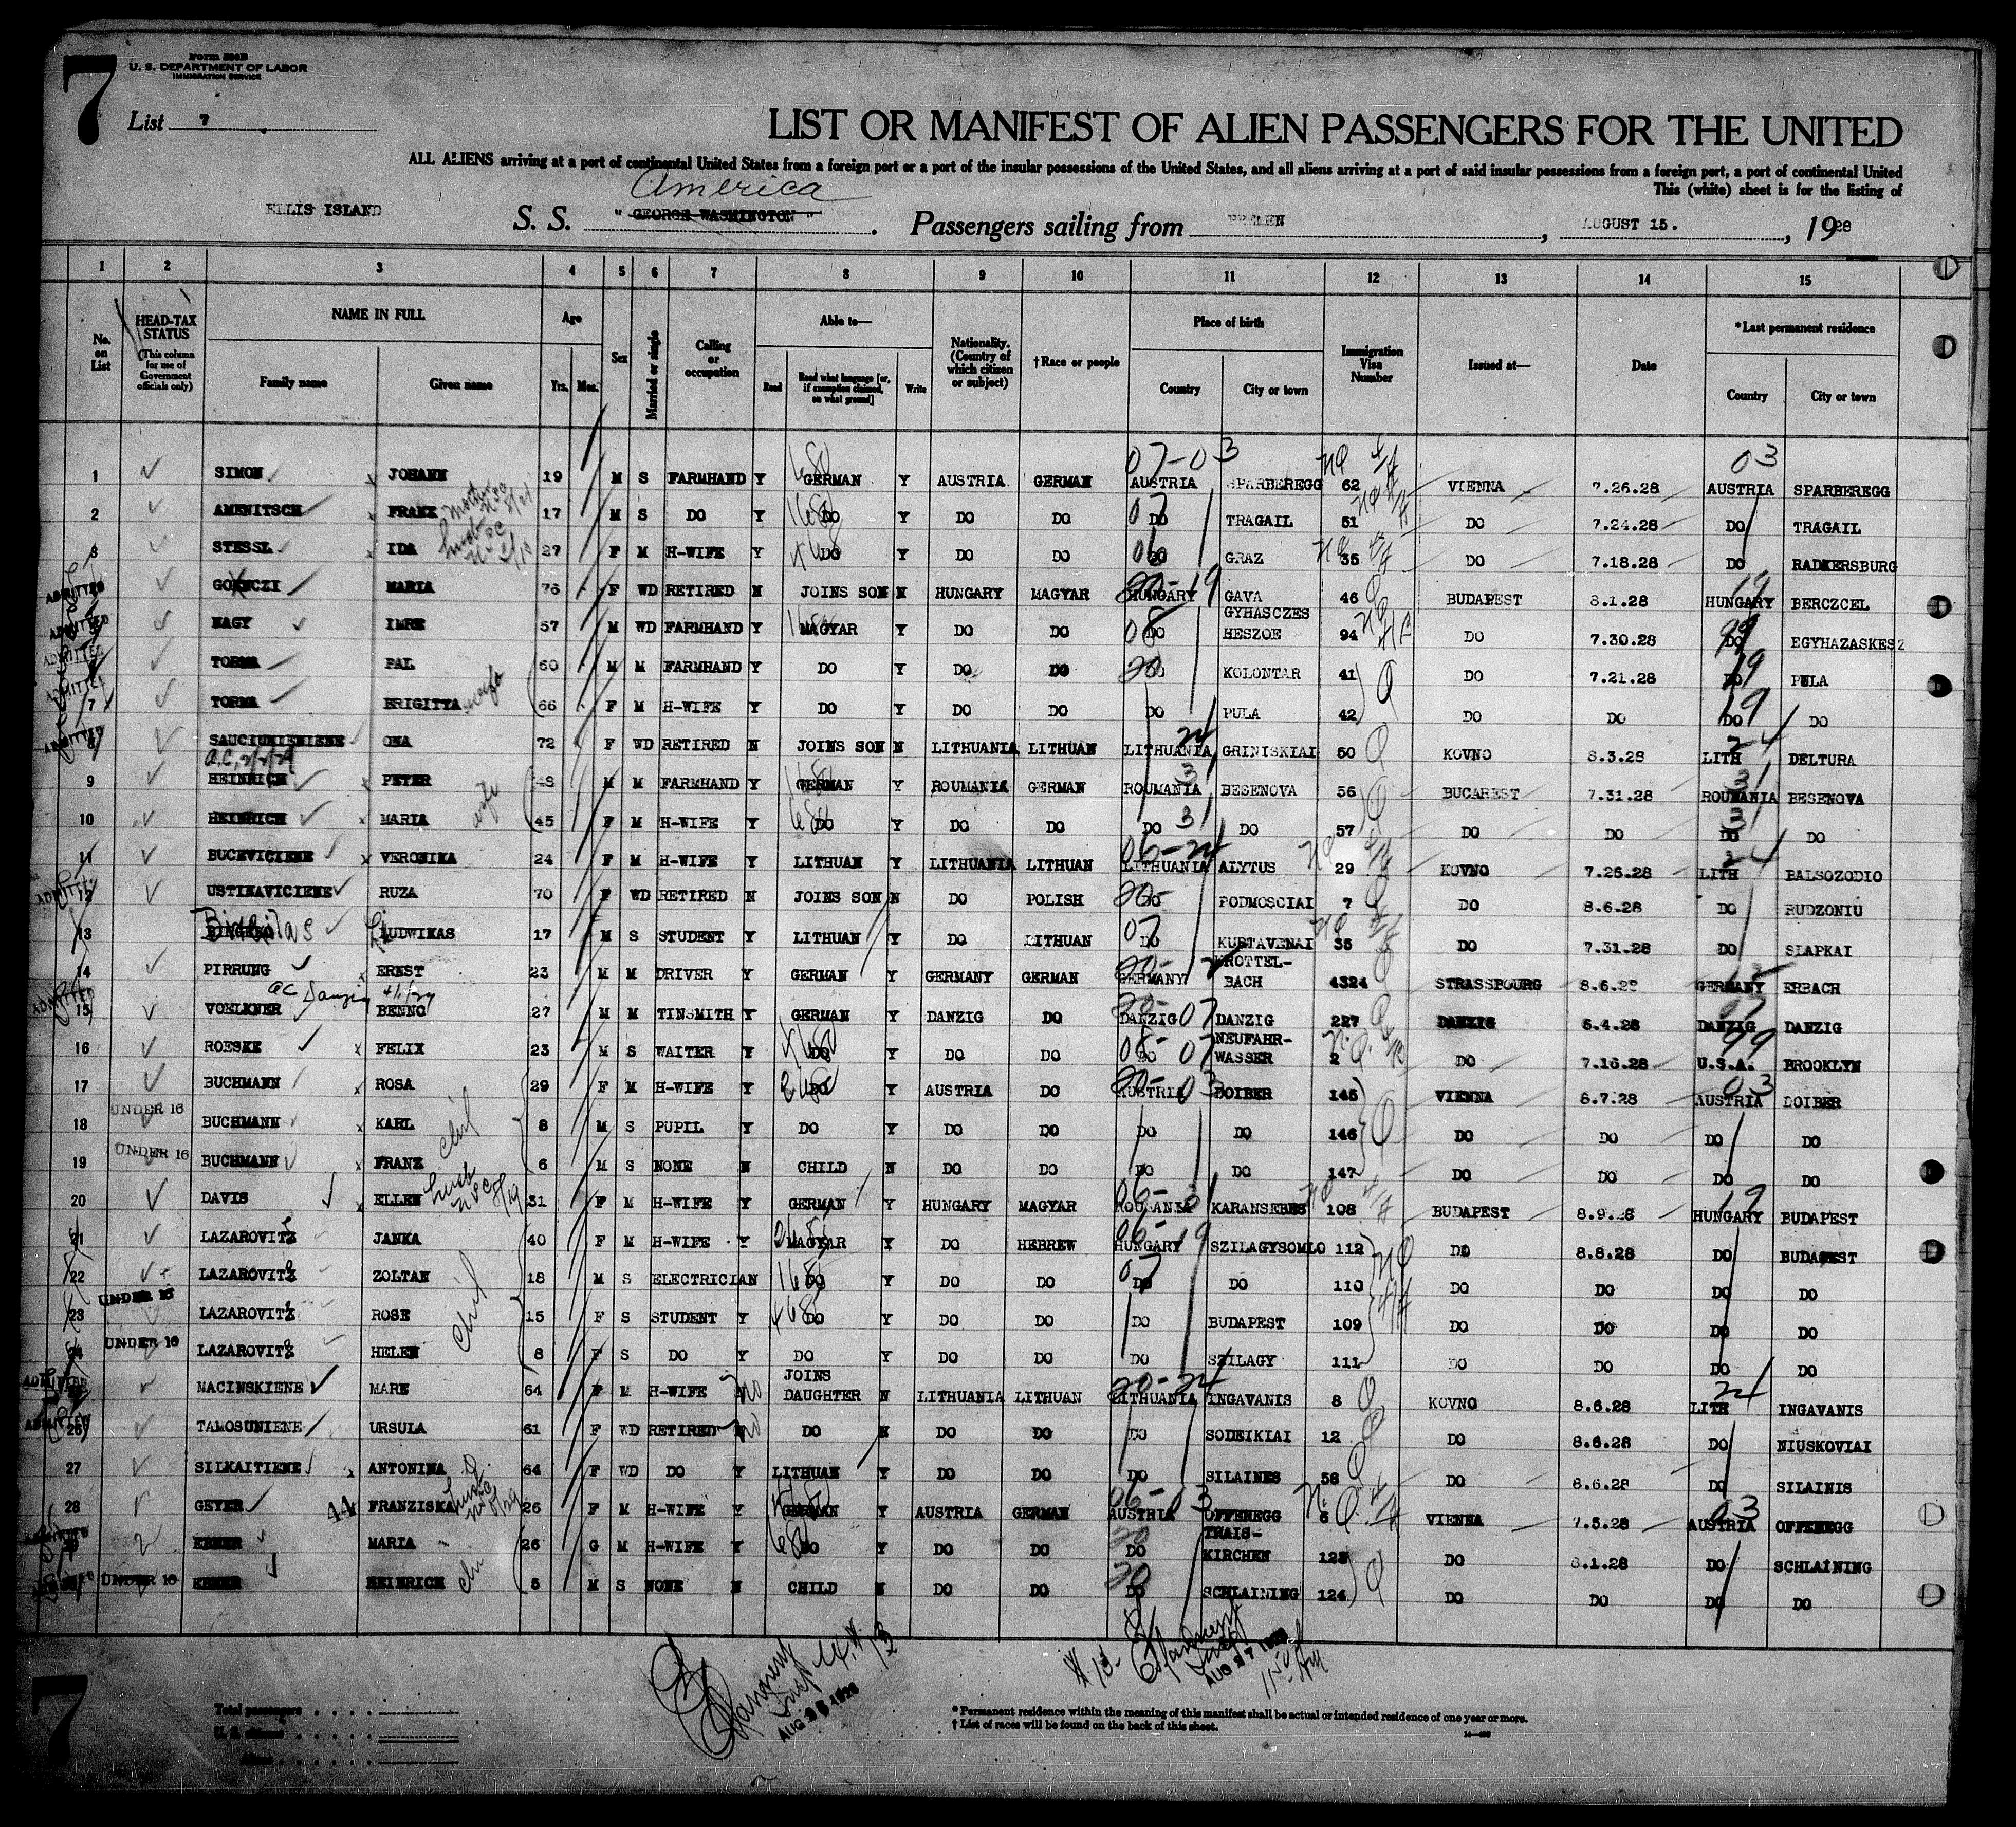 7
Form 500B
U. S. DEPARTMENT OF LABOR
IMMIGRATION SERVICE
List 7
LIST OR MANIFEST OF ALIEN PASSENGERS FOR THE UNITED
ALL ALIENS arriving at a port of continental United States from a foreign port or a port of the insular possessions of the United States, and all aliens arriving at a port of said insular possessions from a foreign port, a port of continental United
This (white) sheet is for the listing of
America
ELLIS ISLAND S. S. "GEORGE WASHINGTON" . Passengers sailing from BREMEN , AUGUST 15. , 1928
1 2 3 4 5 6 7 8 9 10 11 12 13 14 15
No. on List
HEAD-TAX STATUS (This column for use of Government officials only)
NAME IN FULL Family name Given name
Age Yrs. Mos.
Sex
Married or single
Calling or occupation
Able to— Read Read what language [or, if exemption claimed, on what ground] Write
Nationality. (Country of which citizen or subject)
†Race or people
Place of birth Country City or town
Immigration Visa Number
Issued at—
Date
*Last permanent residence Country City or town
07-03 03
1 SIMON JOHANN 19 M S FARMHAND Y GERMAN Y AUSTRIA GERMAN AUSTRIA SPARBEREGG 62 VIENNA 7.26.28 AUSTRIA SPARBEREGG
2 AMENITSCH FRANZ 17 M S DO Y DO Y DO DO DO TRAGAIL 51 DO 7.24.28 DO TRAGAIL
3 STESSL IDA 27 F M H-WIFE Y DO Y DO DO DO GRAZ 35 DO 7.18.28 DO RADKERSBURG
ADMITTED MARIA 76 F WD RETIRED N JOINS SON N HUNGARY MAGYAR HUNGARY GAVA 46 BUDAPEST 8.1.28 HUNGARY BERCZCEL
ADMITTED NAGY IMRE 57 M WD FARMHAND Y MAGYAR Y DO DO DO GYHASCZES HESZOE 94 DO 7.30.28 DO EGYHAZASKESZ
ADMITTED TORMA PAL 60 M M FARMHAND Y DO Y DO DO DO KOLONTAR 41 DO 7.21.28 DO PULA
ADMITTED 7 TORMA BRIGITTA wife 66 F M H-WIFE Y DO Y DO DO DO PULA 42 DO DO DO DO
ADMITTED 8 SAUCIUNIENIENE ONA 72 F WD RETIRED N JOINS SON N LITHUANIA LITHUAN LITHUANIA GRINISKIAI 50 KOVNO 8.3.28 LITH DELTURA
9 HEINRICH PETER 48 M M FARMHAND Y GERMAN Y ROUMANIA GERMAN ROUMANIA BESENOVA 56 BUCAREST 7.31.28 ROUMANIA BESENOVA
10 HEINRICH MARIA wife 45 F M H-WIFE Y DO Y DO DO DO DO 57 DO DO DO DO
11 BUCEVICIENE VERONIKA 24 F M H-WIFE Y LITHUAN Y LITHUANIA LITHUAN LITHUANIA ALYTUS 29 KOVNO 7.26.28 LITH BALSOZODIO
ADMITTED 12 USTINAVICIENE RUZA 70 F WD RETIRED N JOINS SON N DO POLISH DO PODMOSCIAI 7 DO 8.6.28 DO RUDZONIU
13 LUDWIKAS 17 M S STUDENT Y LITHUAN Y DO LITHUAN DO KURTAVENAI 35 DO 7.31.28 DO SLAPKAI
14 PIRRUNG ERNST 23 M M DRIVER Y GERMAN Y GERMANY GERMAN GERMANY BACH 4324 STRASSPOURG 8.6.28 GERMANY ERBACH
ADMITTED 15 VOELKNER BENNO 27 M M TINSMITH Y GERMAN Y DANZIG DO DANZIG DANZIG 227 DANZIG 6.4.28 DANZIG DANZIG
16 ROESKE FELIX 23 M S WAITER Y DO Y DO DO DO NEUFAHR-WASSER 2 DO 7.16.28 U.S.A. BROOKLYN
17 BUCHMANN ROSA 29 F M H-WIFE Y DO Y AUSTRIA DO AUSTRIA DOIBER 145 VIENNA 8.7.28 AUSTRIA DOIBER
18 UNDER 16 BUCHMANN KARL 8 M S PUPIL Y DO Y DO DO DO DO 146 DO DO DO DO
19 UNDER 16 BUCHMANN FRANZ 6 M S NONE N CHILD N DO DO DO DO 147 DO DO DO DO
20 DAVIS ELLEN 31 F M H-WIFE Y GERMAN Y HUNGARY MAGYAR ROUMANIA KARANSEBES 108 BUDAPEST 8.9.28 HUNGARY BUDAPEST
21 LAZAROVITS JANKA 40 F M H-WIFE Y MAGYAR Y DO HEBREW HUNGARY SZILAGYSOMLO 112 DO 8.8.28 DO BUDAPEST
22 LAZAROVITS ZOLTAN 18 M S ELECTRICIAN DO Y DO DO DO DO 110 DO DO DO DO
23 UNDER 16 LAZAROVITS ROSE 15 F S STUDENT Y DO Y DO DO DO BUDAPEST 109 DO DO DO DO
24 UNDER 16 LAZAROVITS HELEN 8 F S DO Y DO Y DO DO DO SZILAGY 111 DO DO DO DO
ADMITTED MACINSKIENE MARE 64 F M H-WIFE no JOINS DAUGHTER N LITHUANIA LITHUAN LITHUANIA INGAVANIS 8 KOVNO 8.6.28 LITH INGAVANIS
ADMITTED 26 TAMOSUNIENE URSULA 61 F WD RETIRED no DO N DO DO DO SODEIKIAI 12 DO 8.6.28 DO NIUSKOVIAI
27 SILKAITIENE ANTONINA 64 F WD DO Y LITHUAN Y DO DO DO SILAINES 58 DO 8.6.28 DO SILAINIS
28 GEYER FRANZISKA 26 F M H-WIFE Y GERMAN Y AUSTRIA GERMAN AUSTRIA OFFENEGG 6 VIENNA 7.5.28 AUSTRIA OFFENEGG
ADMITTED MARIA 26 G M H-WIFE Y DO Y DO DO DO TRAIS-KIRCHEN 123 DO 8.1.28 DO SCHLAINING
UNDER 16 HEINRICH 5 M S NONE N CHILD N DO DO DO SCHLAINING 124 DO DO DO DO
AUG 27 1928
7
Total passengers
U. S. citizens
Aliens
* Permanent residence within the meaning of this manifest shall be actual or intended residence of one year or more.
† List of races will be found on the back of this sheet.